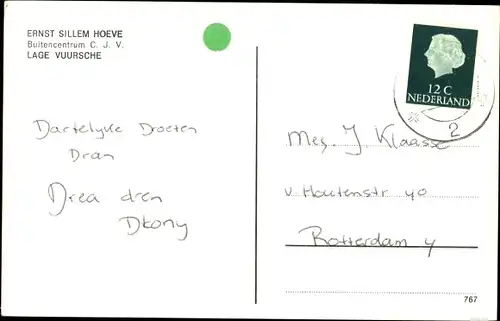 ERNST SILLEM HOEVE
Buitencentrum C. J. V.
LAGE VUURSCHE
12 C
NEDERLAND
2
Hartelijke Groeten
Mej. J Klaasse
v. Houtenstr 40
Rotterdam 4
767